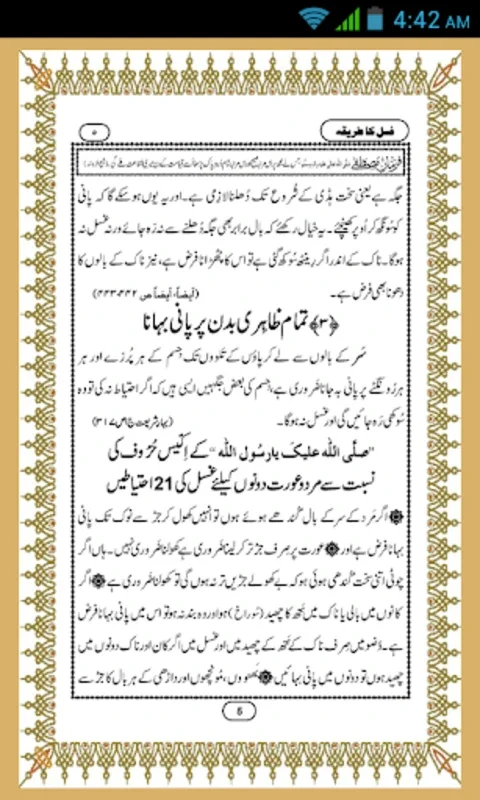 4:42 AM
غسل کا طریقہ
۵
فرمانِ مصطفےٰ
جگہ ہے یعنی سخت ہڈی کے شُروع تک دُھلنا لازِمی ہے۔ اور یہ یوں ہو سکے گا کہ پانی
کو سُونگھ کر اُوپر کھینچئے۔ یہ خیال رکھئے کہ بال برابر بھی جگہ دُھلنے سے نہ رَہ جائے ورنہ غسل نہ
ہوگا۔ ناک کے اندر اگر رِینٹھ سُوکھ گئی ہے تو اس کا چُھڑانا فرض ہے، نیز ناک کے بالوں کا
دھونا بھی فرض ہے۔ (أیضاً، أیضاً ص ۴۴۲،۴۴۳)
﴿۳﴾ تمام ظاہِری بدن پر پانی بہانا
سَر کے بالوں سے لے کر پاؤں کے تَلووں تک جِسم کے ہر پُرزے اور ہر
ہر رُونگٹے پر پانی بہ جانا ضَروری ہے، جِسم کی بعض جگہیں ایسی ہیں کہ اگر احتیاط نہ کی تو وہ
سُوکھی رَہ جائیں گی اور غسل نہ ہوگا۔ (بہارِ شریعت ج۱ ص ۳۱۷)
"صلَّی اللہ علیک یا رسُول اللہ" کے اِکّیس حُرُوف کی
نسبت سے مرد و عورت دونوں کیلئے غسل کی 21 احتیاطیں
اگر مَرد کے سر کے بال گُندھے ہوئے ہوں تو انہیں کھول کر جڑ سے نوک تک پانی
بہانا فرض ہے اور عورت پر صِرف جڑ تر کر لینا ضَروری ہے کھولنا ضَروری نہیں۔ ہاں اگر
چوٹی اتنی سخت گُندھی ہوئی ہو کہ بے کھولے جڑیں تر نہ ہوں گی تو کھولنا ضَروری ہے اگر
کانوں میں بالی یا ناک میں نَتھ کا چَھید (سُوراخ) ہو اور وہ بند نہ ہو تو اس میں پانی بہانا فرض
ہے۔ وُضو میں صِرف ناک کے نَتھ کے چَھید میں اور غسل میں اگر کان اور ناک دونوں میں
چَھید ہوں تو دونوں میں پانی بہائیں بَھنووں، مُونچھوں اور داڑھی کے ہر بال کا جڑ سے
5